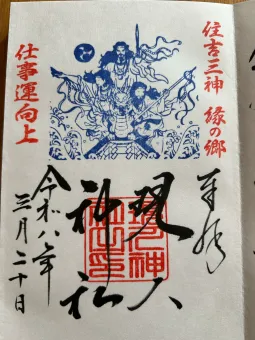 住吉三神 縁の郷
奉拝
現人
神社
仕事運向上
令和八年
三月二十日